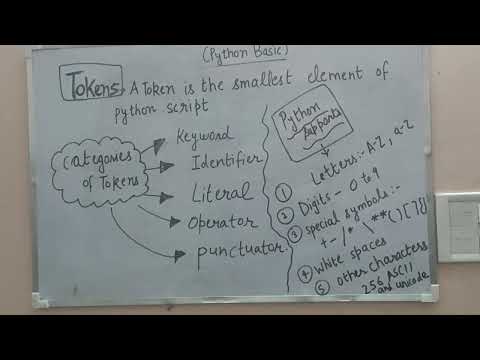 (Python Basic)
Tokens. A Token is the smallest element of
python script
Categories
of Tokens
Keyword
Identifier
Literal
Operator
punctuator
Python
Supports
① Letters:- A-Z, a-z
② Digits - 0 to 9
③ special symbols:-
+ - / * \ ** ( ) [ ] { }
④ white spaces
⑤ other characters
256 ASCII
and unicode